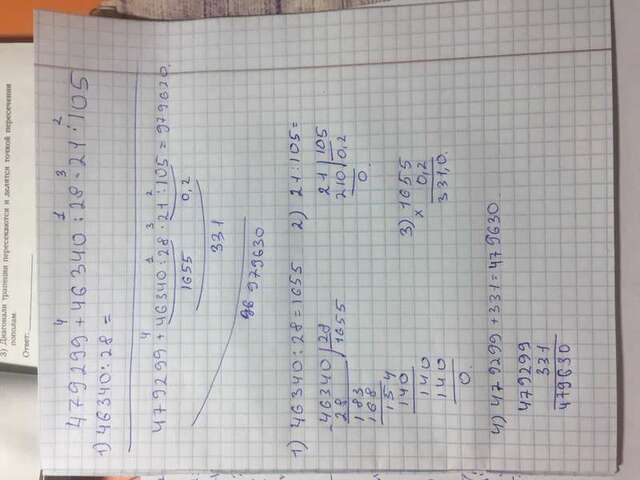 3) Диагонали трапеции пересекаются и делятся точкой пересечения
пополам.
Ответ:
4 1 3 2
479299 + 46340 : 28 · 21 : 105
1) 46340 : 28 =
4 1 3 2
479299 + 46340 : 28 · 21 : 105 = 979630.
1655 0,2
331
96 979630
1) 46340 : 28 = 1655 2) 21 : 105 =
- 46340 28 21 105
28 1655 210 0,2
183 0.
168
154 3) 1655
140 x 0,2
140 331,0.
140
0.
4) 479299 + 331 = 479630.
479299
331
479630